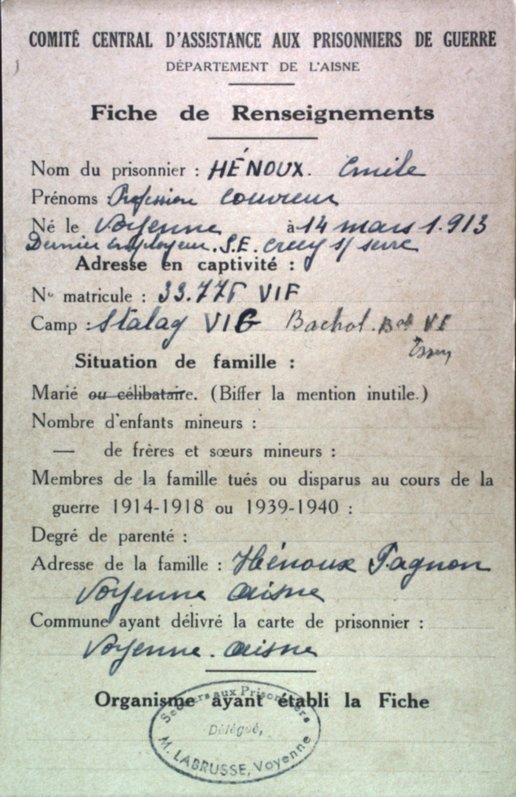 COMITÉ CENTRAL D'ASSISTANCE AUX PRISONNIERS DE GUERRE
DÉPARTEMENT DE L'AISNE
Fiche de Renseignements
Nom du prisonnier : HÉNOUX. Emile
Prénoms Profession couvreur
Né le Voyenne à 14 mars 1.913
Dernier employeur. S.E. Crecy s/ serre
Adresse en captivité :
No matricule : 33.775 VIF
Camp : Stalag VIG Bachol.
Situation de famille :
Marié ou célibataire. (Biffer la mention inutile.)
Nombre d'enfants mineurs :
— de frères et sœurs mineurs :
Membres de la famille tués ou disparus au cours de la
guerre 1914-1918 ou 1939-1940 :
Degré de parenté :
Adresse de la famille : Hénoux Pagnon
Voyenne aisne
Commune ayant délivré la carte de prisonnier :
Voyenne. aisne
Organisme ayant établi la Fiche
Secours aux Prisonniers
Délégué,
M. LABRUSSE, Voyenne